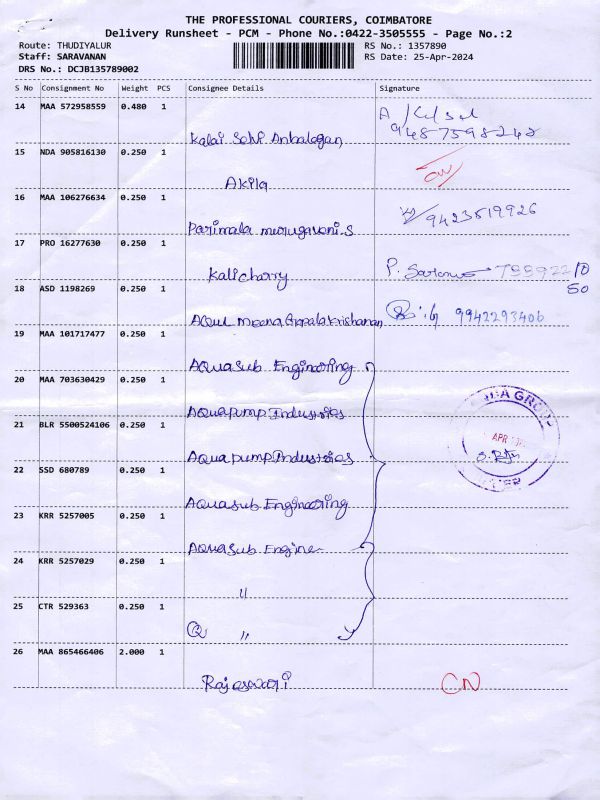 THE PROFESSIONAL COURIERS, COIMBATORE
Delivery Runsheet - PCM - Phone No.:0422-3505555 - Page No.:2
Route: THUDIYALUR RS No.: 1357890
Staff: SARAVANAN RS Date: 25-Apr-2024
DRS No.: DCJB135789002
S No Consignment No Weight PCS Consignee Details Signature
14 MAA 572958559 0.480 1
Kalai Selvi Anbalagan
15 NDA 905816130 0.250 1
Akila
16 MAA 106276634 0.250 1 9423519926
Parimala murugavoni.s
17 PRO 16277630 0.250 1
Kalicharry
18 ASD 1198269 0.250 1 9942293406
Meena Gopala Krishanan
19 MAA 101717477 0.250 1
Aquasub Engineering
20 MAA 703630429 0.250 1
Aquapump Industries
21 BLR 5500524106 0.250 1
Aquapump Industries
22 SSD 680789 0.250 1
Aquasub Engineering
23 KRR 5257005 0.250 1
Aquasub Engine
24 KRR 5257029 0.250 1
"
25 CTR 529363 0.250 1
"
26 MAA 865466406 2.000 1
Rajeswari CN